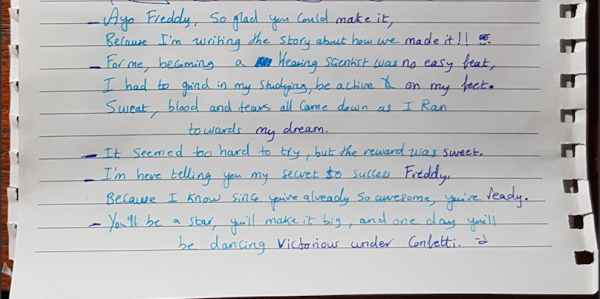 - Ayo Freddy, So glad you Could make it,
Because I'm writing the story about how we made it!!
- For me, becoming a Hearing Scientist was no easy feat,
I had to grind in my studying, be active & on my feet.
Sweat, blood and tears all Came down as I Ran
towards my dream.
- It seemed too hard to try, but the reward was sweet.
- I'm here telling you my secret to success Freddy,
Because I know since you've already so awesome, you've ready.
- You'll be a star, you'll make it big, and one day you'll
be dancing Victorious under Confetti.